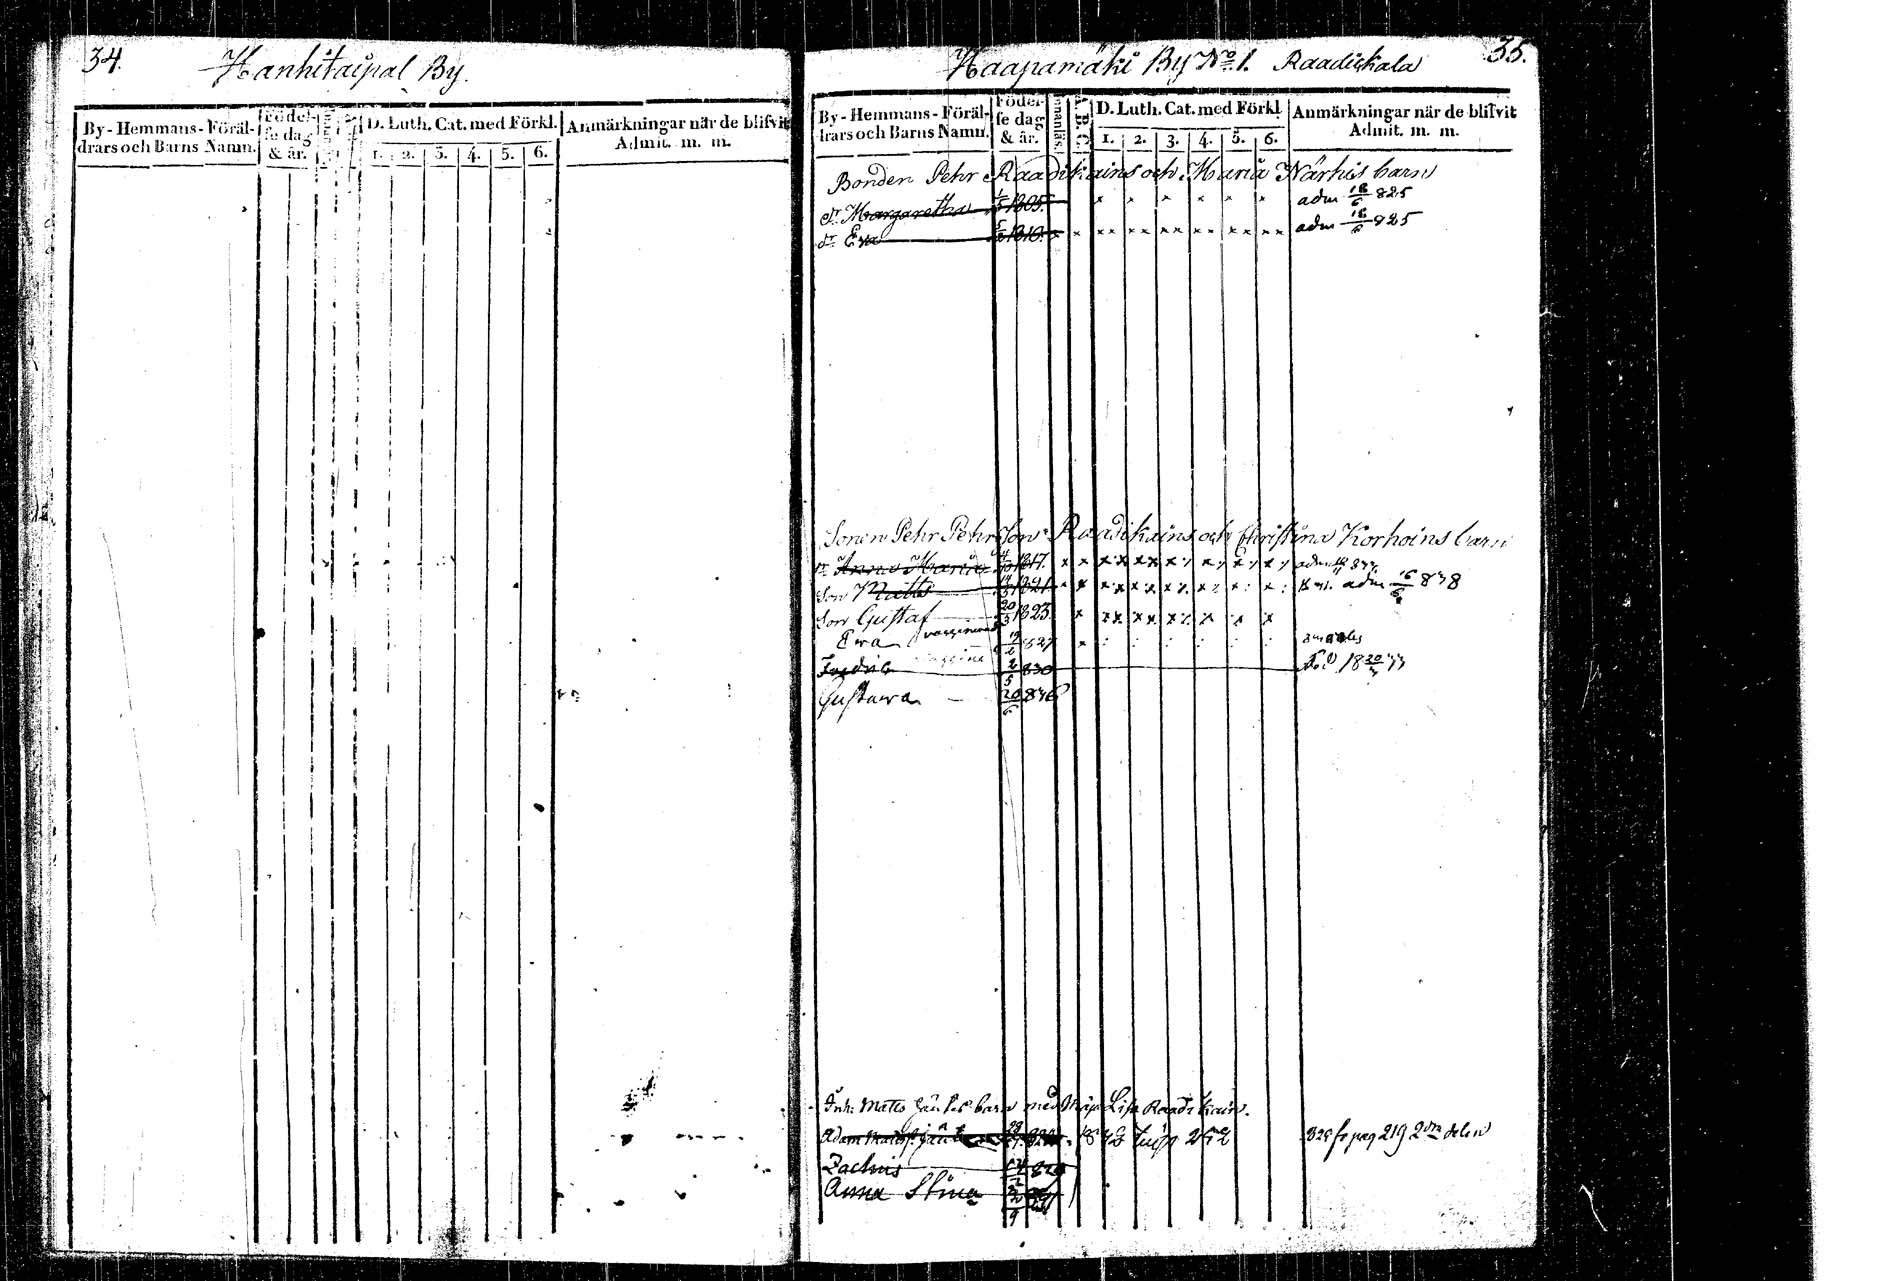 34.
Hanhitaipal By.
By-Hemmans-Föräl-
drars och Barns Namn.
Födel-
se dag
& år.
D. Luth. Cat. med Förkl.
1. 2. 3. 4. 5. 6.
Anmärkningar när de blifvit
Admit. m. m.
35.
Haapamäki By No 1. Raadikala
By-Hemmans-Föräl-
drars och Barns Namn.
Föder-
se dag
& år.
Innanläs.
A.B.C.
D. Luth. Cat. med Förkl.
1. 2. 3. 4. 5. 6.
Anmärkningar när de blifvit
Admit. m. m.
Bonden Pehr Raadikains och Maria Närhis barn
dr Margaretha 1/5 1805. x x x x x x adm 18/6 825
dr Eva 5/ 1810. x x xx xx xx xx xx xx adm 18/6 825
Sonen Pehr Pehrsons Raadikains och Christina Korhoins barn
dr Anna Maria 4/10 1817. x x
Son Matts 1821. adm 16/6 838
Son Gustaf 20/3 1823. x xx xx x x x
Eva vaccinerad 19/2 827 x
Fredric vaccine 2/5 830 Död 18 20/ 33
Gustava — 20/6 836
Inh: Matts barn med Lisa Raadikain.
Adam Matts. 28/ 329 fr pag 219 2dra delen
Zachris 14/2 829
Anna Stina